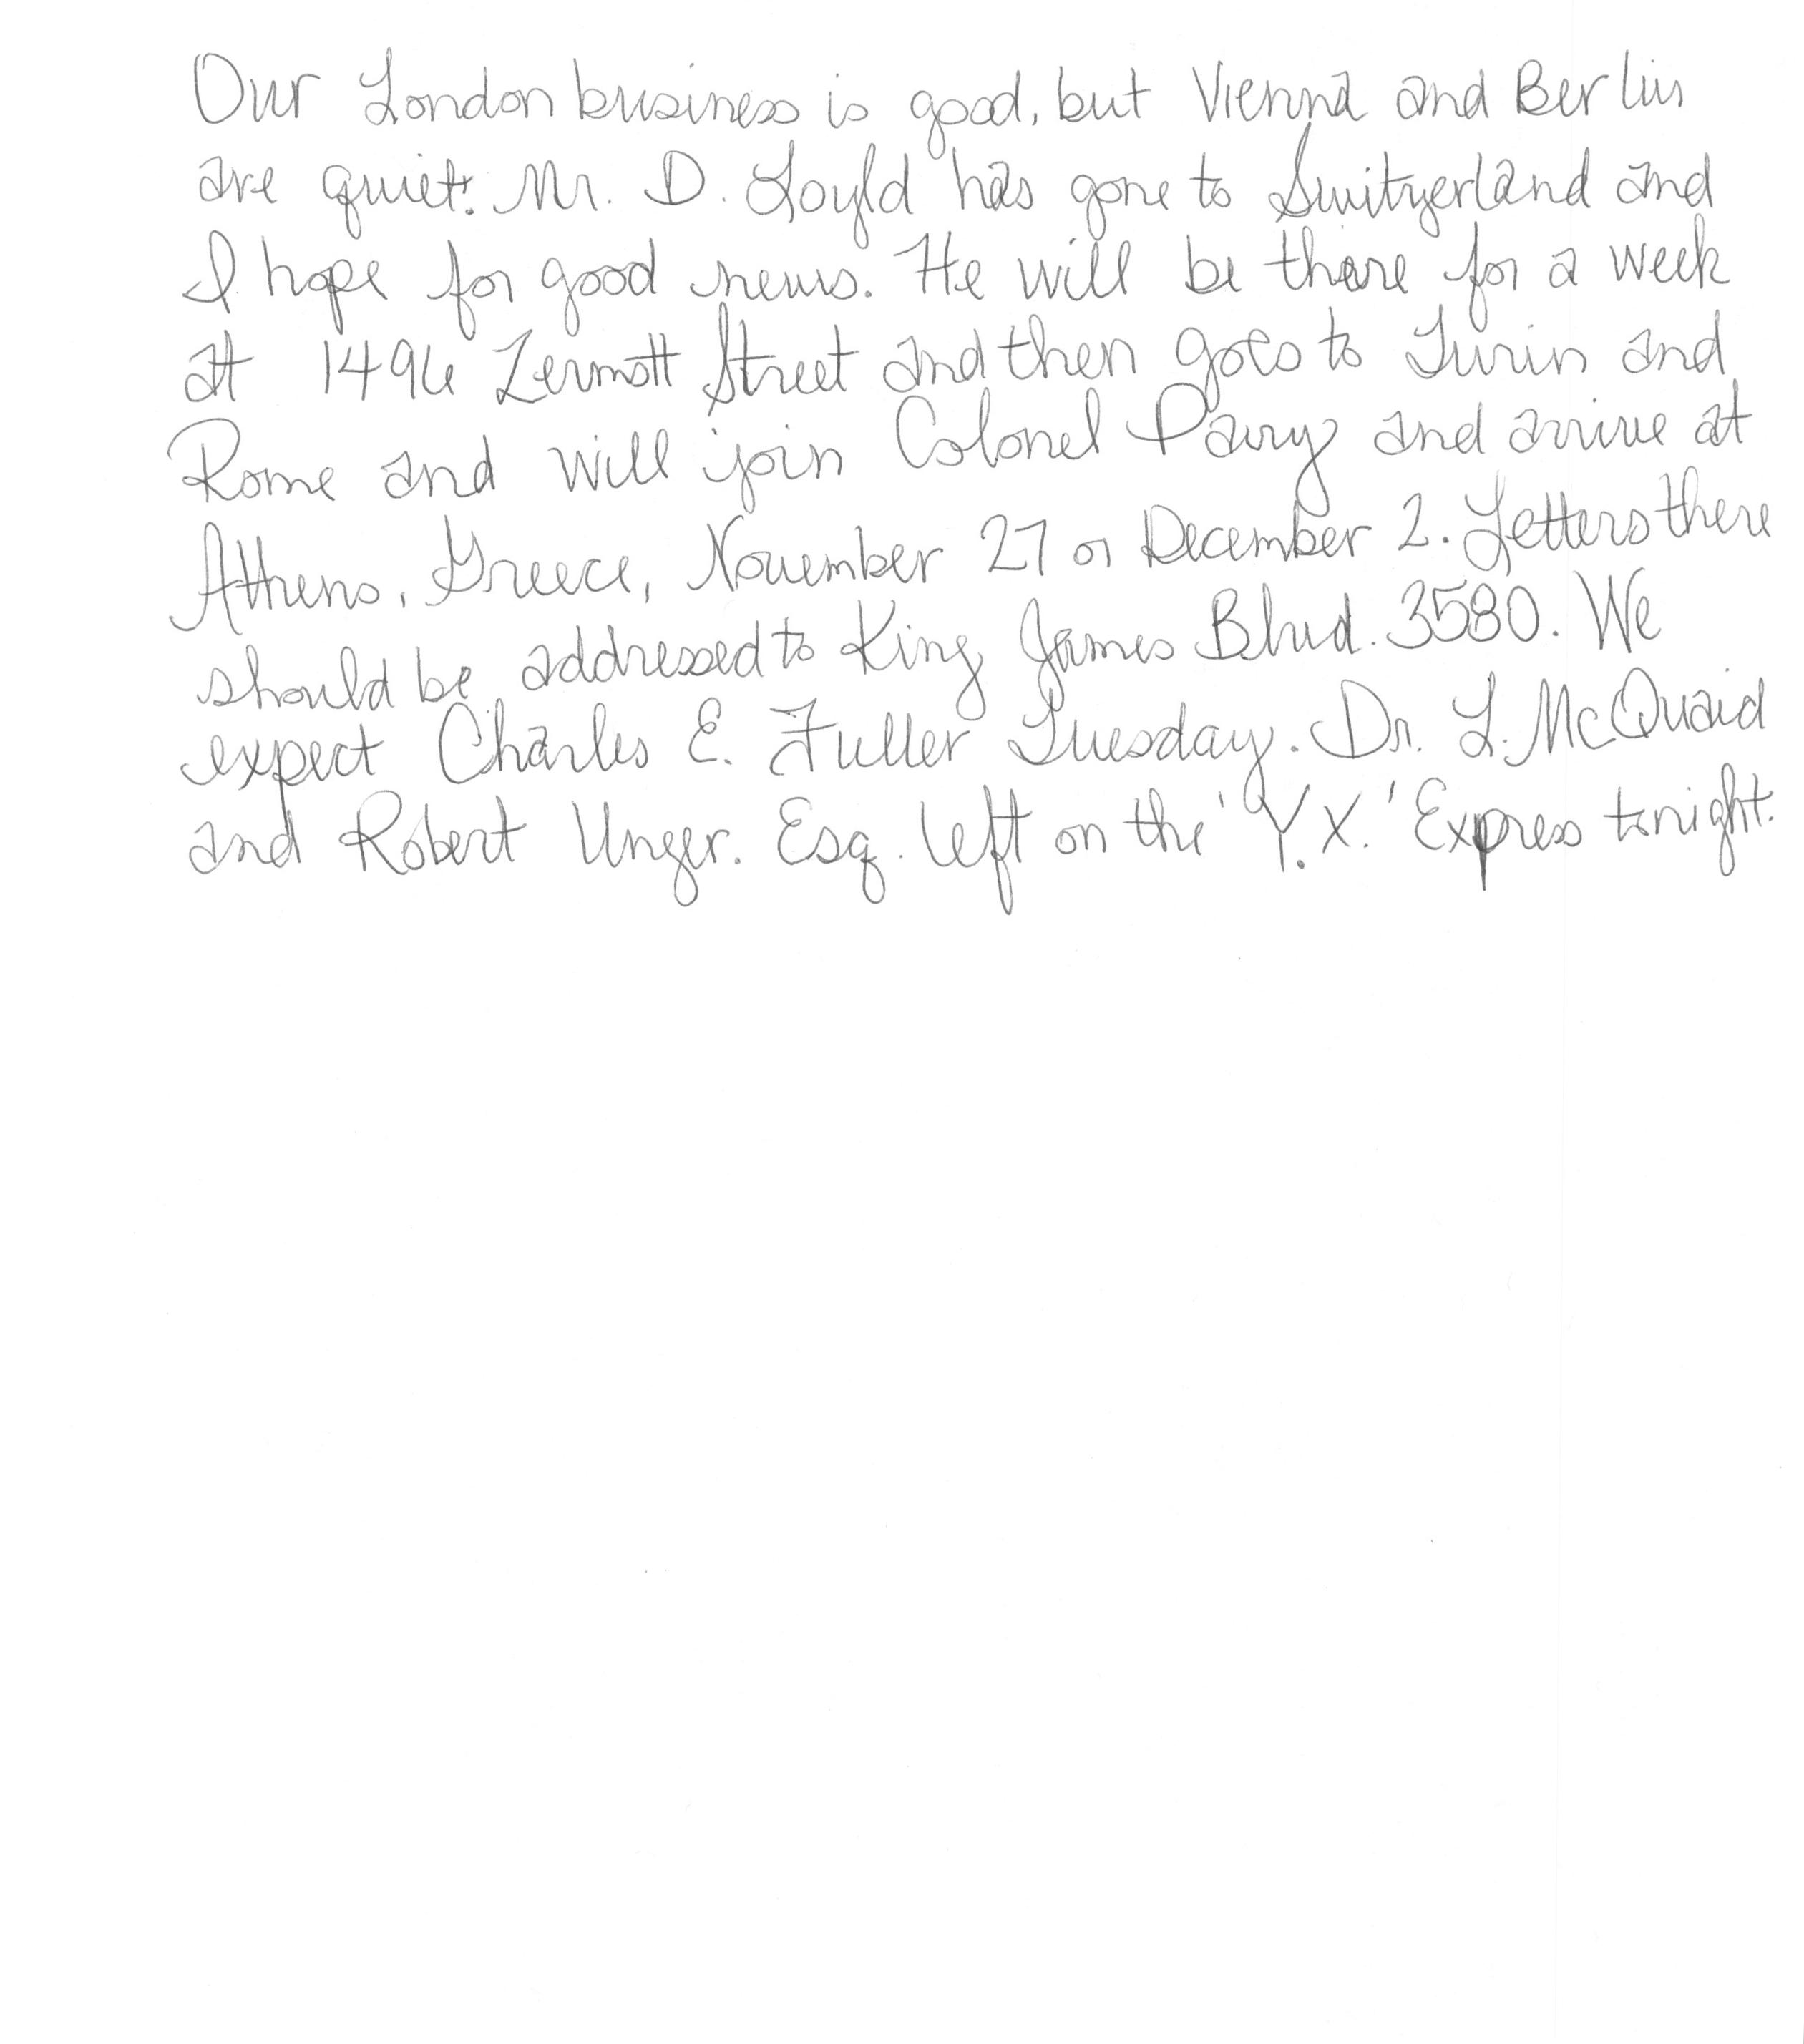 Our London business is good, but Vienna and Berlin
are quiet. Mr. D. Loyld has gone to Switzerland and
I hope for good news. He will be there for a week
at 1496 Zermott Street and then goes to Turin and
Rome and will join Colonel Parry and arrive at
Athens, Greece, November 27 or December 2. Letters there
should be addressed to King James Blvd. 3580. We
expect Charles E. Fuller Tuesday. Dr. L. McQuaid
and Robert Unger. Esq. left on the 'Y.X.' Express tonight.